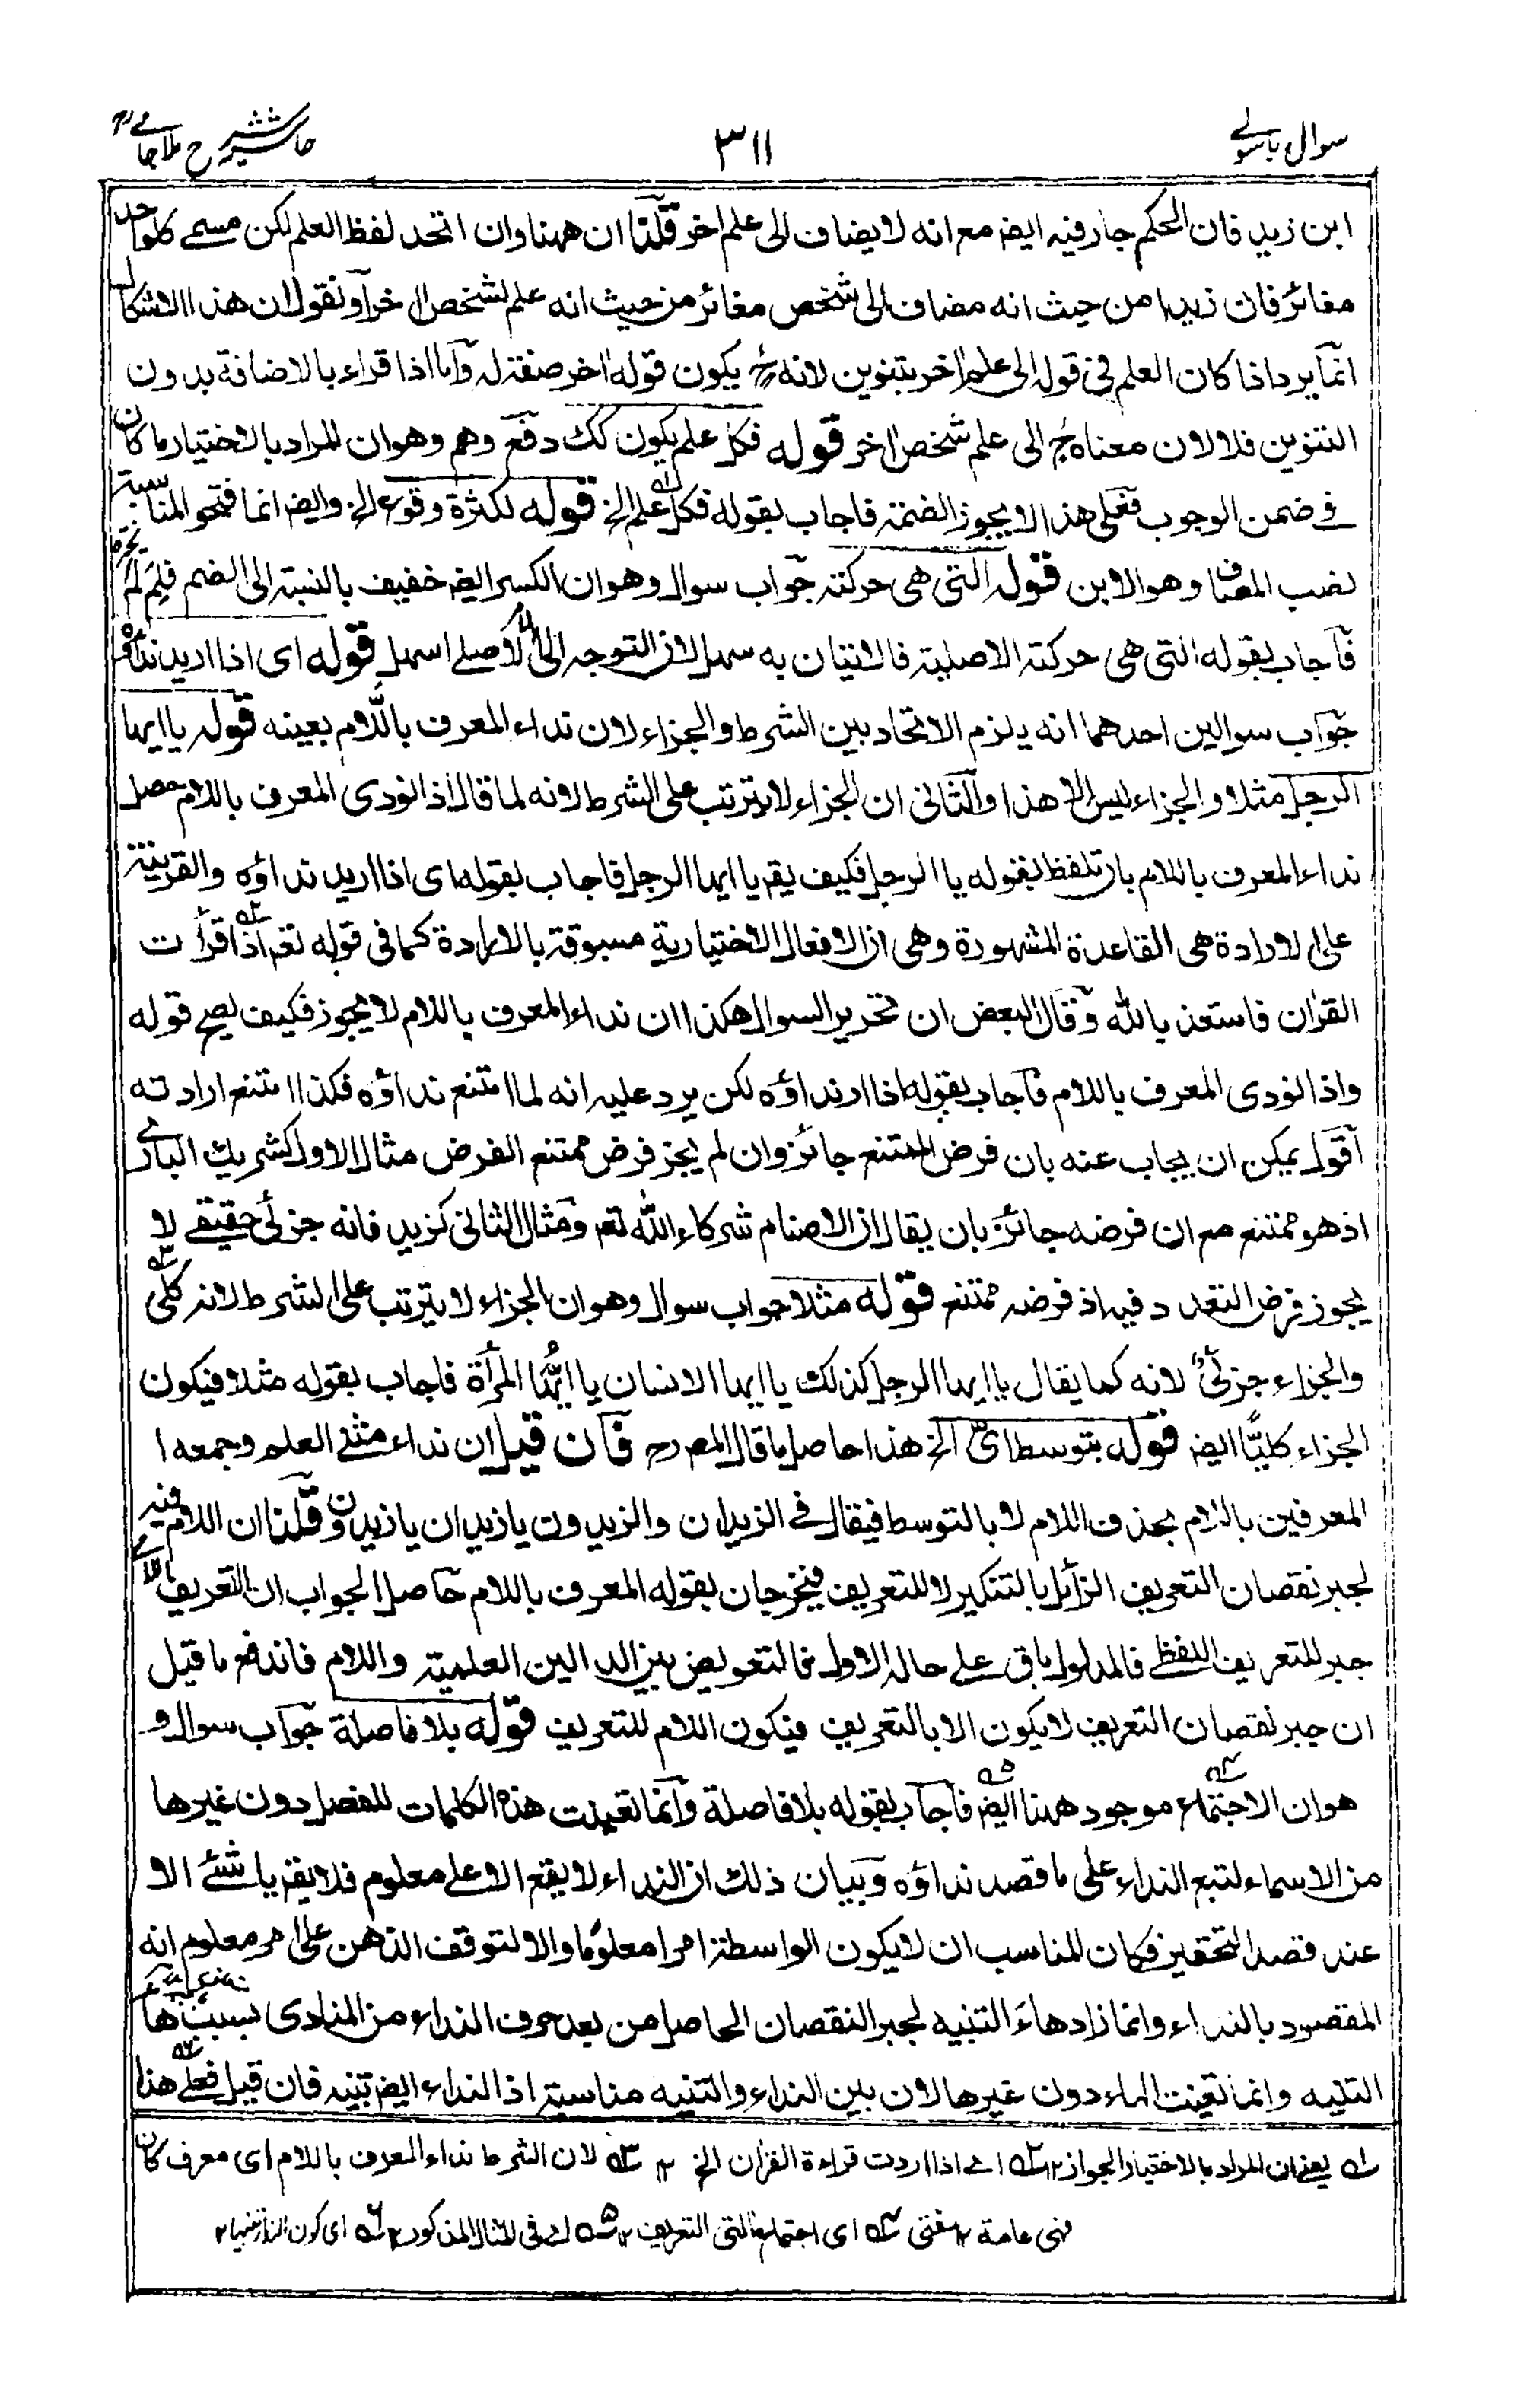 سوال باسولے
٣١١
حاشیہ شرح ملا جامے
ابن زيد فان الحكم جار فيه ايضا مع انه لا يضاف الى علم اخر قلنا ان ههنا وان اتحد لفظ العلم لكن مسمے كل واحد
مغائر فان زيدا من حيث انه مضاف الى شخص مغائر من حيث انه علم لشخص اخر او نقول ان هذا الاشكال
انما يرد اذا كان العلم فى قوله الى علم اخر بتنوين لانه ح يكون قوله اخر صفة له واما اذا قراء بالاضافة بدون
التنوين فلا لان معناه ح الى علم شخص اخر قوله فكل علم يكون كك دفع وهم وهو ان المراد بالاختيار ما كان
فے ضمن الوجوب فعلى هذا لا يجوز الضمة فاجاب بقوله فكل علم الخ قوله لكثرة وقوع الخ وايضا انما فتحو المناسبة
نصب المضاف وهو الابن قوله التى هى حركته جواب سوال وهو ان الكسر ايضا خفيف بالنسبة الى الضم فلم لم
فاجاب بقوله التى هى حركته الاصلية فالاتيان به سهل لان التوجه الى الاصلے اسهل قوله اى اذا اريد نداؤه
جواب سوالين احدهما انه يلزم الاتحاد بين الشرط والجزاء لان نداء المعرف باللام بعينه قوله يا ايها
الرجل مثلا والجزاء ليس الا هذا والثانى ان الجزاء لا يترتب على الشرط لانه لما قال اذا نودى المعرف باللام حصل
نداء المعرف باللام بان تلفظ بقوله يا الرجل فكيف يقر يا ايها الرجل فاجاب بقوله اى اذا اريد نداؤه والقرينة
على الارادة هى القاعدة المشهورة وهى ان الافعال الاختيارية مسبوقة بالارادة كما فى قوله تعم اذا قرأت
القران فاستعذ بالله وقال البعض ان تحرير السوال هكذا ان نداء المعرف باللام لا يجوز فكيف يصح قوله
واذا نودى المعرف باللام فاجاب بقوله اذا ارنداؤه لكن يرد عليه انه لما امتنع نداؤه فكذا امتنع ارادته
اقول يمكن ان يجاب عنه بان فرض الممتنع جائز وان لم يجز فرض ممتنع الفرض مثال الاول كشريك البارے
اذ هو ممتنع مع ان فرضه جائز بان يقال ان الاصنام شركاء الله تعم ومثال الثانى كزيد فانه جزئى حقيقے لا
يجوز فرض التعدد فيه اذ فرضه ممتنع قوله مثلا جواب سوال وهو ان الجزاء لا يترتب على الشرط لانه كلى
والجزاء جزئى لانه كما يقال يا ايها الرجل كذلك يا ايها الانسان يا ايتها المرأة فاجاب بقوله مثلا فيكون
الجزاء كليًّا ايضا قوله بتوسط اى الخ هذا حاصل ما قال المصرح فان قيل ان نداء مثنے العلم وجمعه ا
المعرفين باللام بحذف اللام لا بالتوسط فيقال فے الزيدان والزيدون يا زيدان يا زيدون قلنا ان اللام فيه
لجبر نقصان التعريف الزائل بالتنكير لا للتعريف فيخرجان بقوله المعرف باللام حاصل الجواب ان التعريف
جبر للتعريف اللفظے فالمدلول باق علے حاله الاول فالتعويض بين الدالين العلمية واللام فاندفع ما قيل
ان جبر نقصان التعريف لا يكون الا بالتعريف فيكون اللام للتعريف قوله بلا فاصلة جواب سوال و
هو ان الاجتماع موجود ههنا ايضا فاجاب بقوله بلا فاصلة وانما تعينت هذه الكلمات للفصل دون غيرها
من الاسماء لتبع النداء على ما قصد نداؤه وبيان ذلك ان النداء لا يقع الا على معلوم فلا يقر يا شئے الا
عند قصد التحقير فكان المناسب ان لا يكون الواسطة امرا معلومًا والا لتوقف الذهن على امر معلوم انه
المقصود بالنداء وانما زاد هاء التنبيه لجبر النقصان الحاصل من بعد حرف النداء من المنادى بسبب ها
التنبيه وانما تعينت الهاء دون غيرها لان بين النداء والتنبيه مناسبة اذ النداء ايضا تنبيه فان قيل فعلے هذا
١ه يعنے ان المراد بالاختيار الجواز ١٢ ٢ه اے اذا اردت قراءة القران الخ ١٢ ٣ه لان الشرط نداء المعرف باللام اى معرف كان
فهى عامة ١٢ مفتى ٤ه اى اجتماع التى التعريف ١٢ ٥ه اے فى المثال المذكور ١٢ ٦ه اى كون النداء تنبيها ١٢